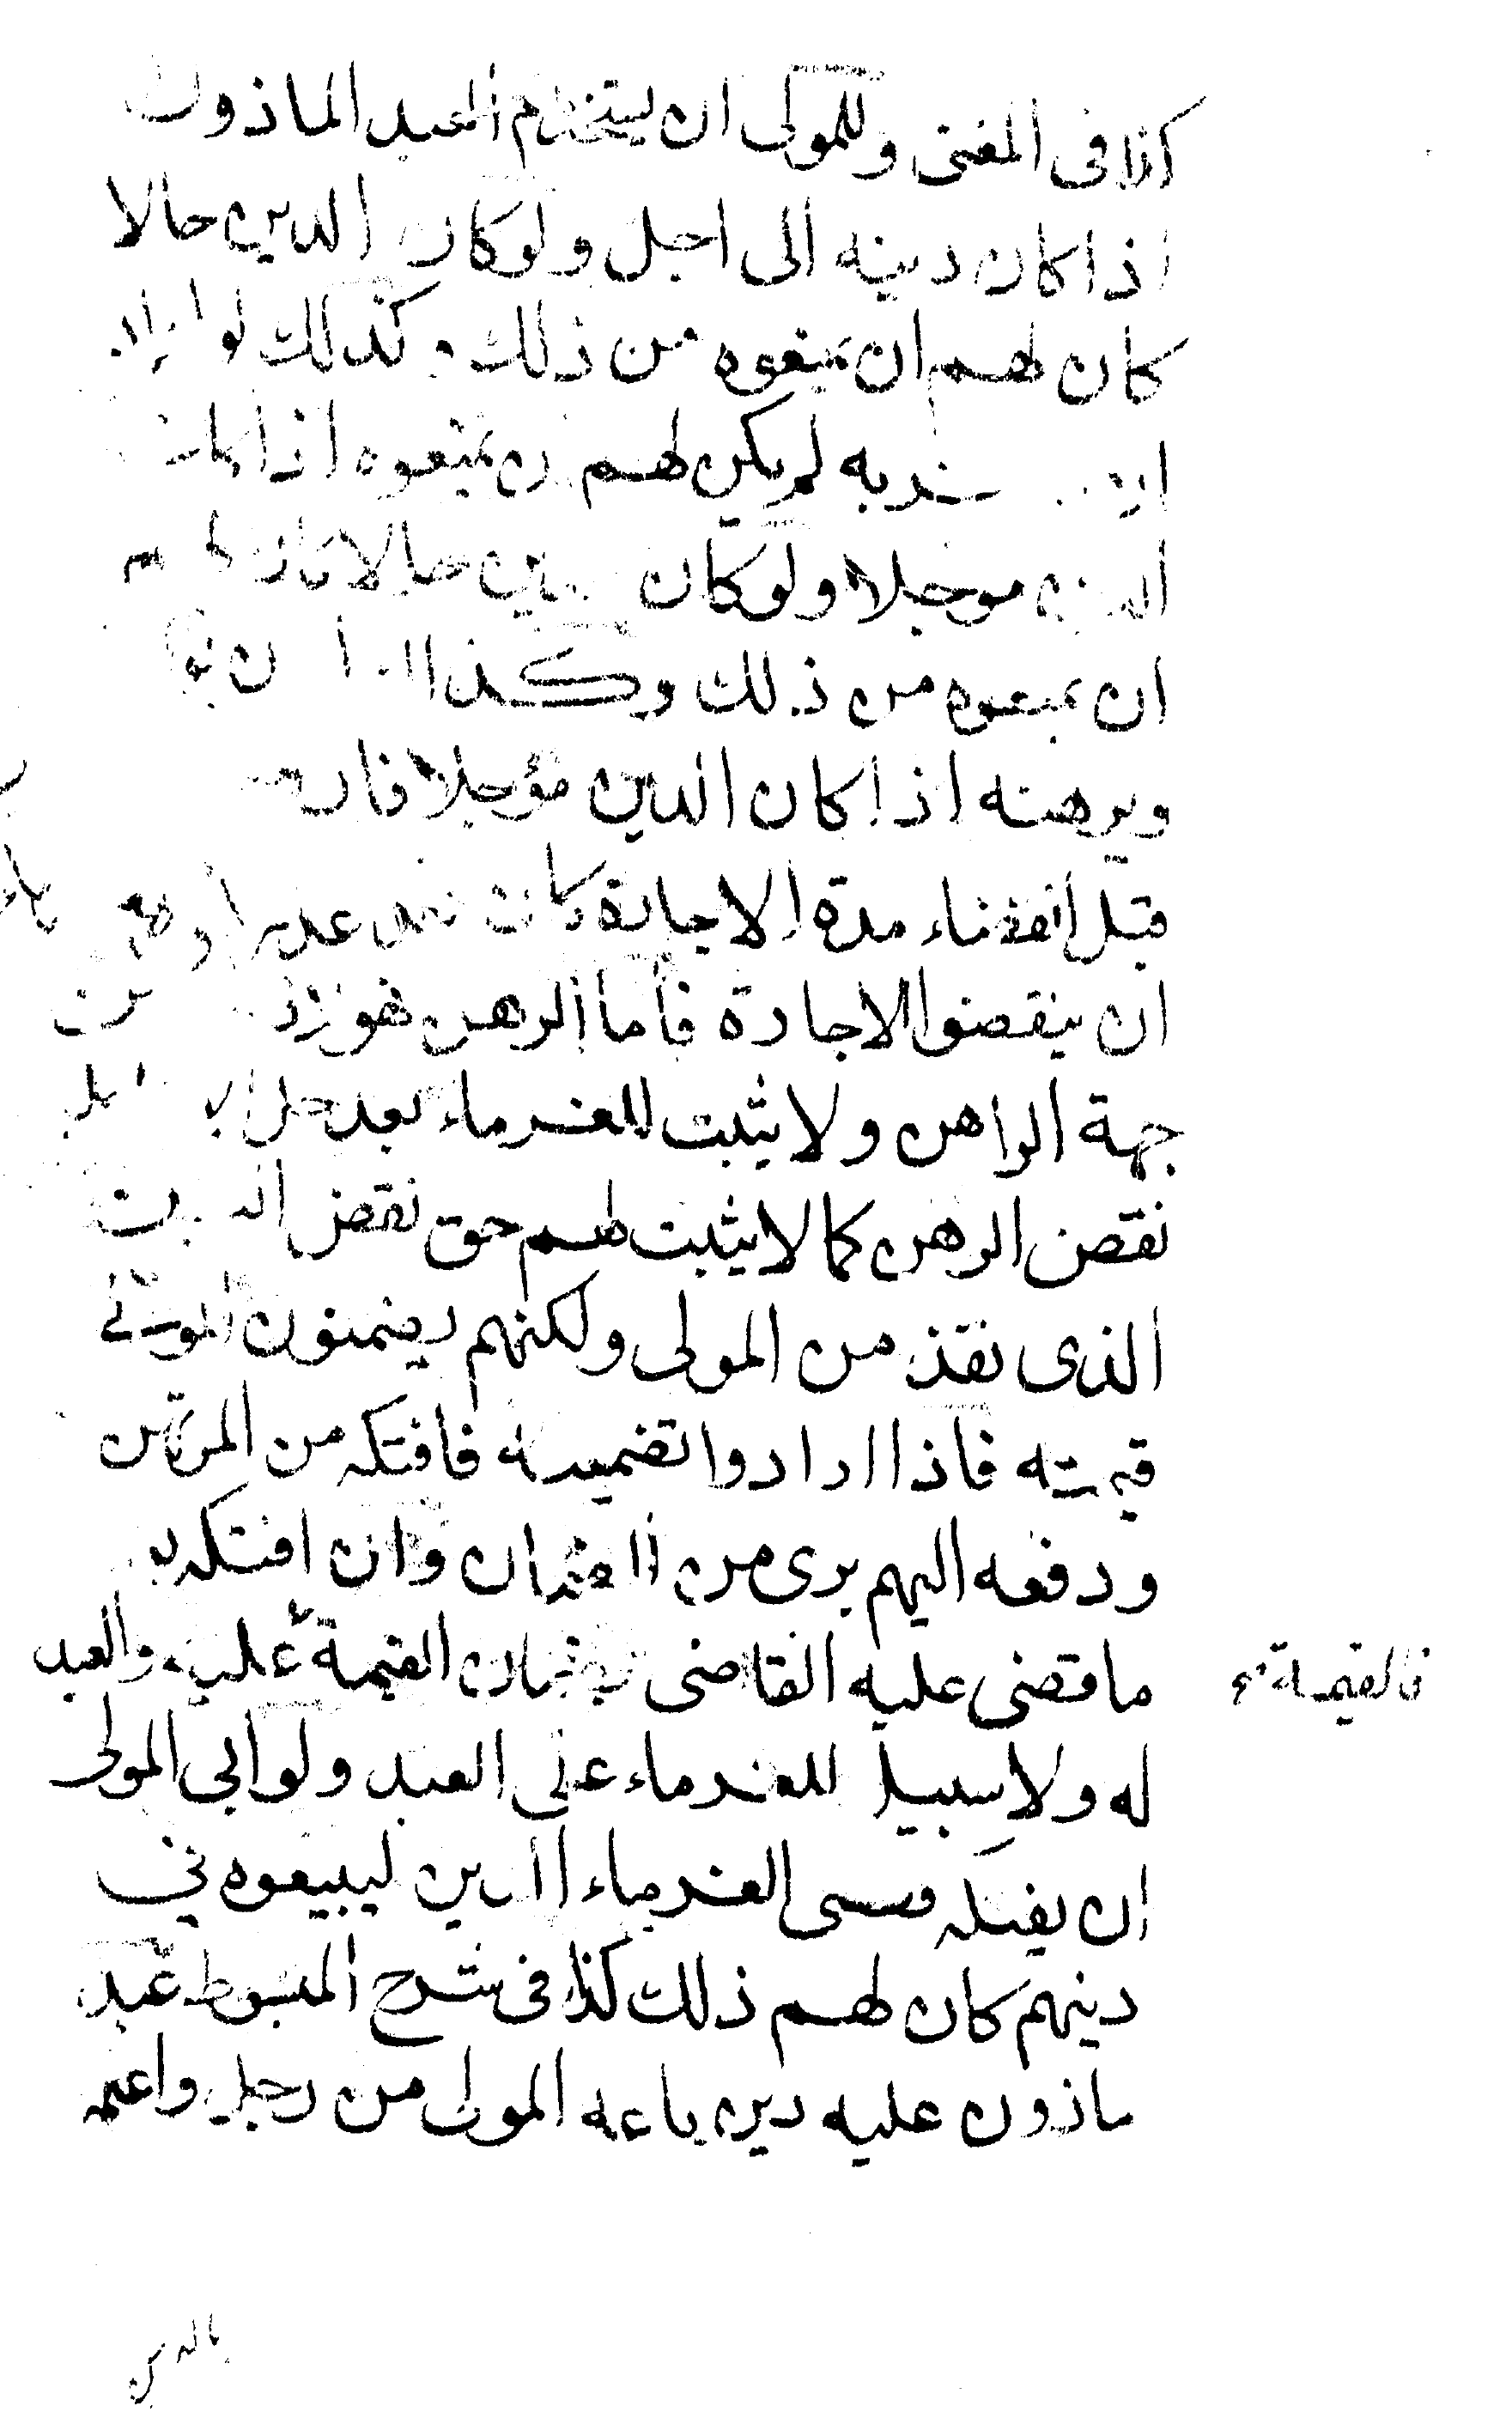 كذا فى المغنى وللمولى ان يستخدم العبد الماذون
اذا كان دينه الى اجل ولو كان الدين حالا
كان لهم ان يمنعوه من ذلك وكذلك لو اراد
به لم يكن لهم ان يمنعوه اذا كان
الدين موجلا ولو كان الدين حالا كان لهم
ان يمنعوه من ذلك وكذا
ويرهنه اذا كان الدين مؤجلا فان
قبل انقضاء مدة الاجارة كانت
ان ينقضوا الاجارة فاما الرهن فهو
جهة الراهن ولا يثبت للغرماء بعد حل
نقض الرهن كما لا يثبت لهم حق نقض البيع
الذى نفذ من المولى ولكنهم يضمنون المولى
قيمته فاذا ارادوا تضمينه فافتكه من المرتهن
ودفعه اليهم برى من الضمان وان افتكه بعد
ما قضى عليه القاضى بضمان القيمة عليه والعبد
فالقيمة
له ولا سبيل للغرماء على العبد ولو ابى المولى
ان يفتكه فقضى الغرماء الدين ليبيعوه في
دينهم كان لهم ذلك كذا فى شرح المبسوط عبد
ماذون عليه دين باعه المولى من رجل واعلمه
بالدين